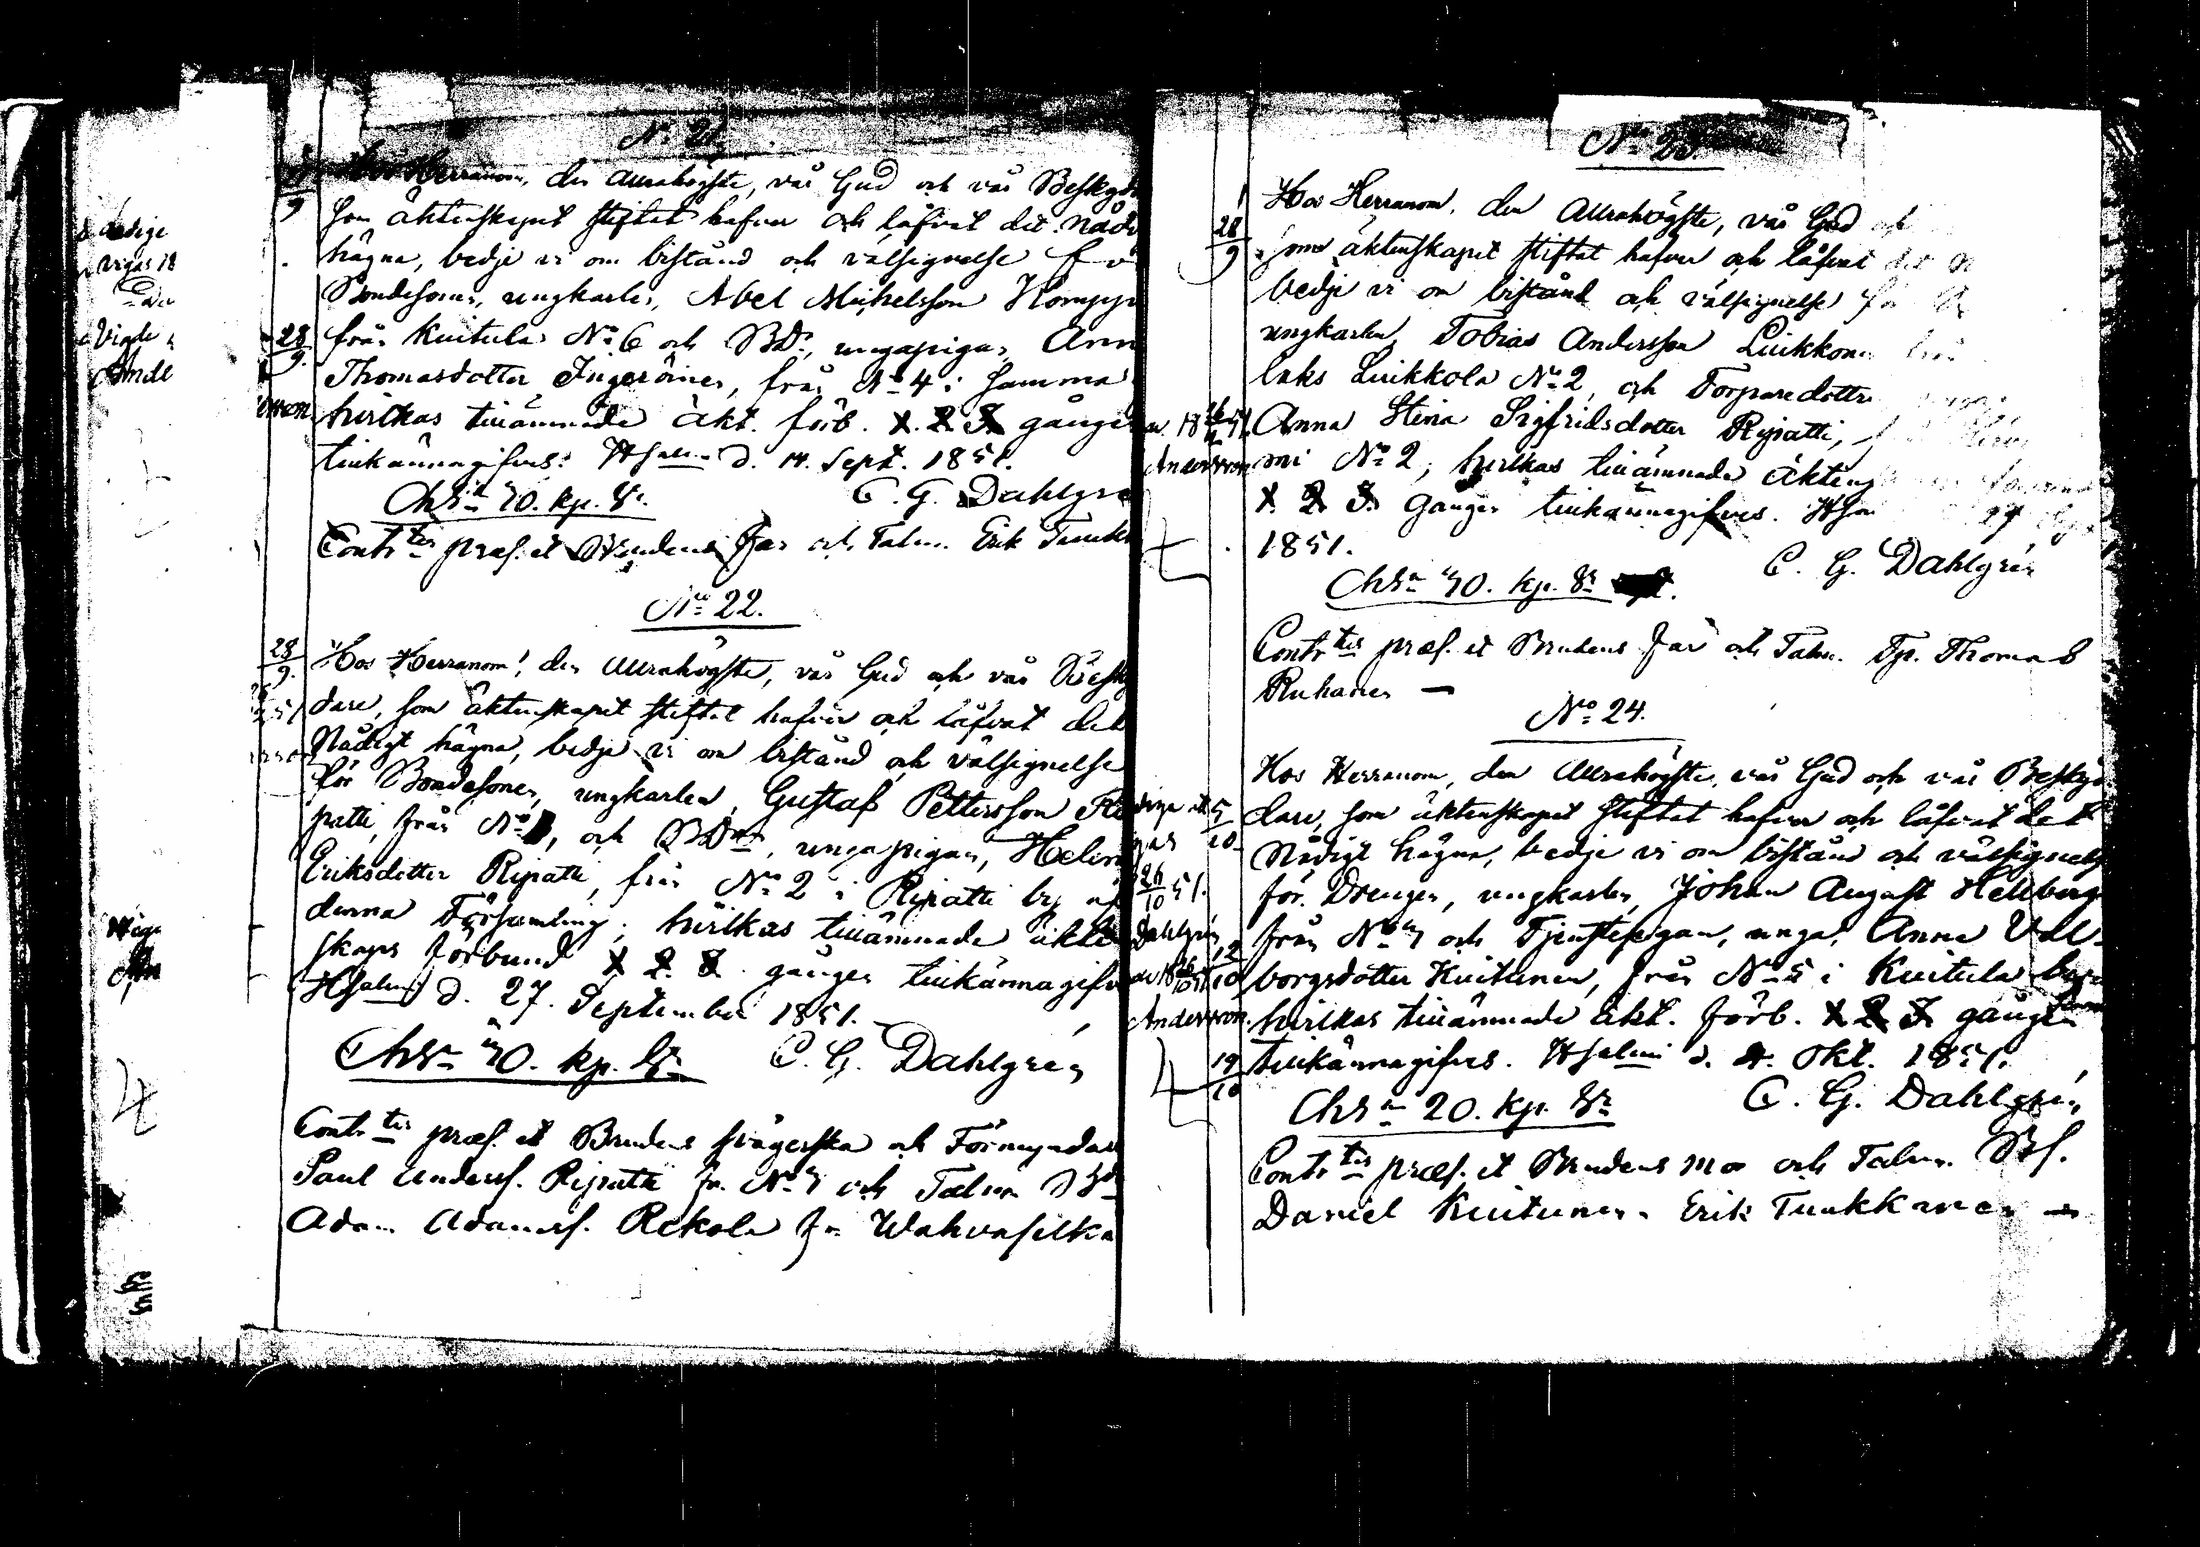 No 21.
Hos Herranom, den Allrahögste, vår Gud och vår Beskyd
som äktenskapet stiftat hafver och låfvat det Nådi
hägna, bedje vi om bistånd och välsignelse för
Bondesonen, ungkarlen, Abel Michelsson Homppi
från Kuitula No 6 och BDr, ungapigan, Ann
Thomasdotter Ingeröinen, från No 4 i samma
hvilkas tillämnade äkt. förb. 1. 2. 3. gången
tillkännagifves. Hsalmi d. 14. Sept. 1851.
Chsn 70. kp. Sr. C. G. Dahlgre
Contrtes præs. et Brudens Far och Talm. Erik Tuukk
No 22.
28
9.
Hos Herranom, den Allrahögste, vår Gud och vår Besky
dare, som äktenskapet stiftat hafver och låfvat det
Nådigt hägna, bedje vi om bistånd och välsignelse
för Bondesonen, ungkarlen, Gustaf Pettersson Ri
patti, från No , och BDr, ungapigan, Helena
Eriksdotter Ripatti, från No 2 i Ripatti by af
denna Församling; hvilkas tillämnade äkten
skaps förbund 1. 2. 3. gången tillkännagifv
Hsalmi d. 27. September 1851.
Chsn 70. kp. Sr C. G. Dahlgrén
Contrtes præs. et Brudens svägerska och Förmyndare
Paul Anderss. Ripatti fr. No 7 och Talman Bd
Adam Adamss. Rekola fr. Wahvaselkä
No 23.
28
9
Hos Herranom, den Allrahögste, vår Gud och
som äktenskapet stiftat hafver och låfvat det N
bedje vi om bistånd och välsignelse för
ungkarlen, Tobias Andersson Luikkonen från
laks Luikkola No 2, och Torparedottren
Anna Stina Sigfridsdotter Ripatti,
mi No 2; hvilkas tillämnade äkten
1. 2. 3. gången tillkännagifves. Hsal 27
1851.
C. G. Dahlgrén
Chsn 70. kp. Sr
Contrtes præs. et Brudens Far och Talm. Tp. Thomas
Ruhanen —
No 24.
Hos Herranom, den Allrahögste, vår Gud och vår Beskyd
dare, som äktenskapet stiftat hafver och låfvat det
Nådigt hägna, bedje vi om bistånd och välsignelse
för Drengen, ungkarlen, Johan August Hellberg
från No 7 och Tjenstepigan, unga, Anna Vall-
borgsdotter Kuitunen, från No 5 i Kuitula by;
hvilkas tillämnade äkt. förb. 1. 2. 3. gången
tillkännagifves. Hsalmi d. 4. Okt. 1851.
Chsn 20. kp. Sr C. G. Dahlgrén
Contrtes præs. et Brudens mor och Talm. Bs.
Daniel Kuitunen. Erik Tuukkanen —